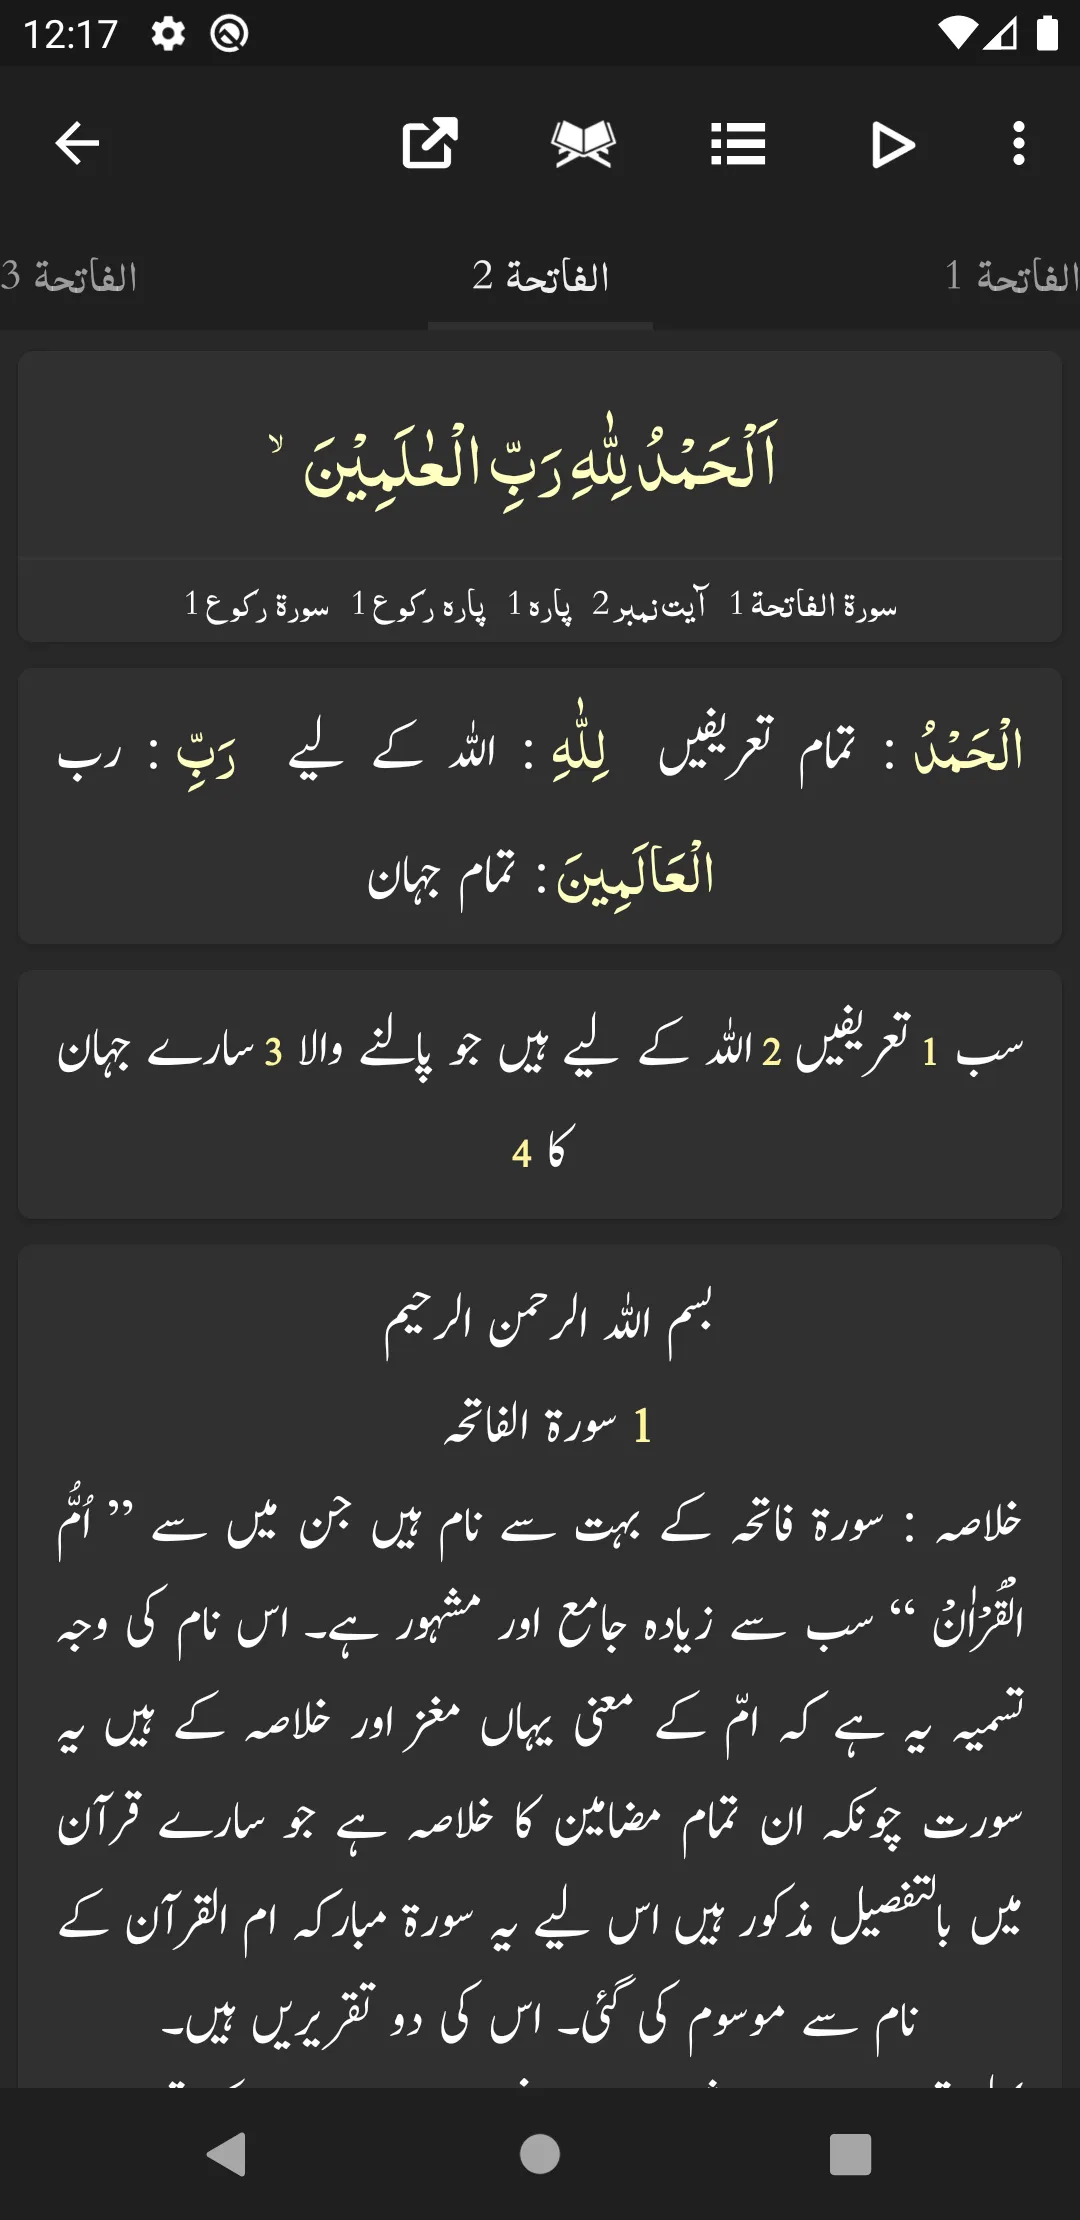 12:17
الفاتحة 1
الفاتحة 2
الفاتحة 3
اَلۡحَمۡدُ لِلّٰهِ رَبِّ الۡعٰلَمِيۡنَ ۙ
سورۃ الفاتحة 1 آیت نمبر 2 پارہ 1 پارہ رکوع 1 سورۃ رکوع 1
الْحَمْدُ : تمام تعریفیں لِلّٰهِ : اللہ کے لیے رَبِّ : رب
الْعَالَمِينَ : تمام جہان
سب 1 تعریفیں 2 اللہ کے لیے ہیں جو پالنے والا 3 سارے جہان
کا 4
بسم اللہ الرحمن الرحیم
1 سورۃ الفاتحہ
خلاصہ : سورۃ فاتحہ کے بہت سے نام ہیں جن میں سے ” اُمُّ
الْقُرْاٰنْ “ سب سے زیادہ جامع اور مشہور ہے۔ اس نام کی وجہ
تسمیہ یہ ہے کہ امّ کے معنی یہاں مغز اور خلاصہ کے ہیں یہ
سورت چونکہ ان تمام مضامین کا خلاصہ ہے جو سارے قرآن
میں بالتفصیل مذکور ہیں اس لیے یہ سورۃ مبارکہ ام القرآن کے
نام سے موسوم کی گئی۔ اس کی دو تقریریں ہیں۔